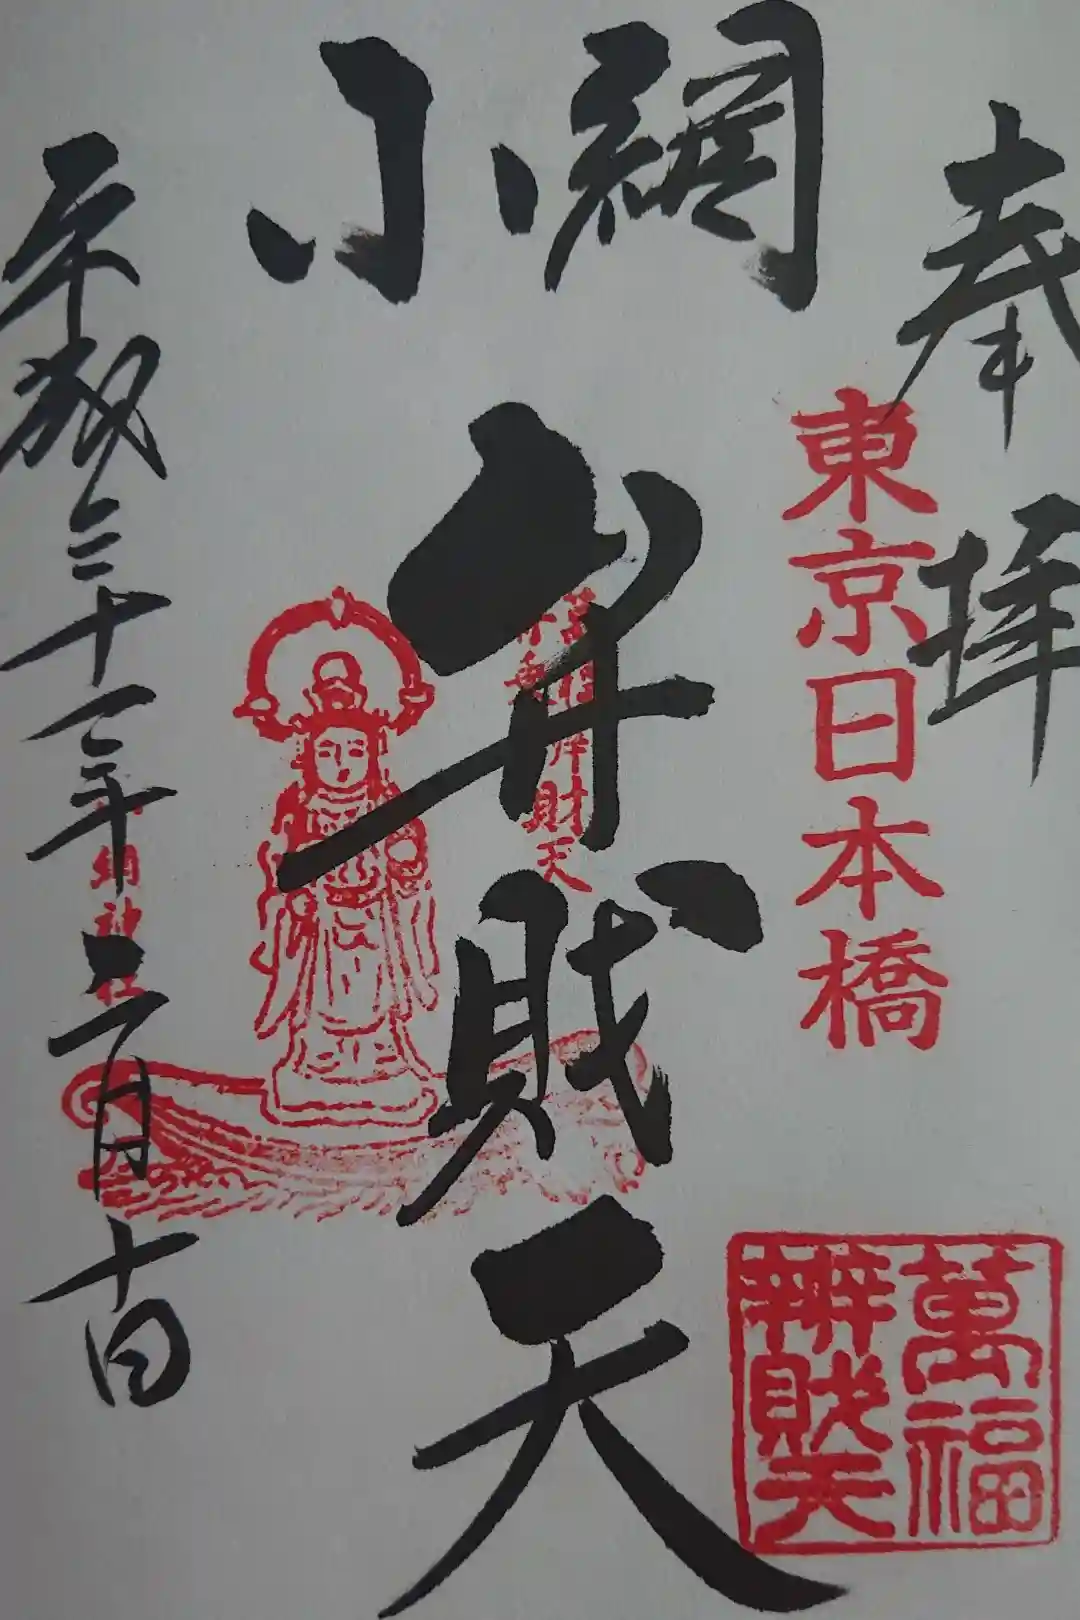 奉拝
東京日本橋
萬福
辨財天
小網
弁財天
財天
平成三十一年三月十日
網神社